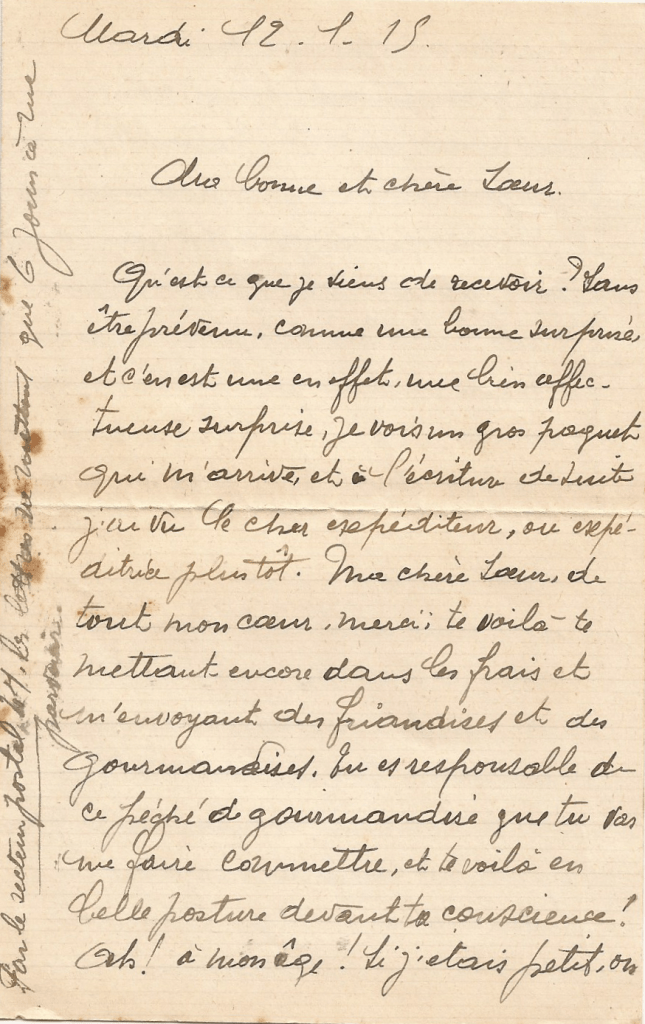 Mardi 12. 1. 15.
Ma bonne et chère Sœur.
Qu'est ce que je viens de recevoir ? Sans
être prévenu, comme une bonne surprise,
et c'en est une en effet, une bien affec-
tueuse surprise, je vois un gros paquet
qui m'arrive, et à l'écriture de suite
j'ai vu le cher expéditeur, ou expé-
ditrice plustôt. Ma chère Sœur, de
tout mon cœur, merci; te voilà te
mettant encore dans les frais et
m'envoyant des friandises et des
gourmandises. Tu es responsable de
ce péché de gourmandise que tu vas
me faire commettre, et te voilà en
belle posture devant ta conscience !
Ah ! à mon âge ! Si j'étais petit, on
Par le secteur postal 47, les lettres ne mettent que 6 jours à me
parvenir.